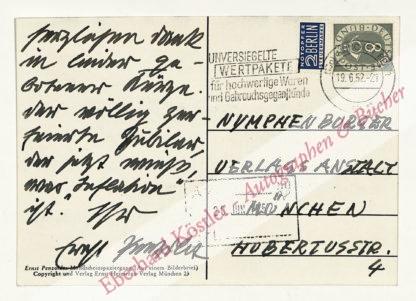 Herzlichen Dank
in leider ge-
botener Kürze.
der völlig zer-
feierte Jubilar
der jetzt weiß,
was "Inflation"
ist. Ihr
Ernst Penzoldt
Copyright und Verlag Ernst Heimeran Verlag München 23
NOTOPFER
2 BERLIN
STEUERMARKE
UNVERSIEGELTE
WERTPAKETE
für hochwertige Waren
und Gebrauchsgegenstände
19.6.52
DEUTSCHE BUNDESPOST
8
NYMPHENBURGER
VERLAGSANSTALT
in
MÜNCHEN
HUBERTUSSTR.
4
Eberhard Köstler Autographen & Bücher